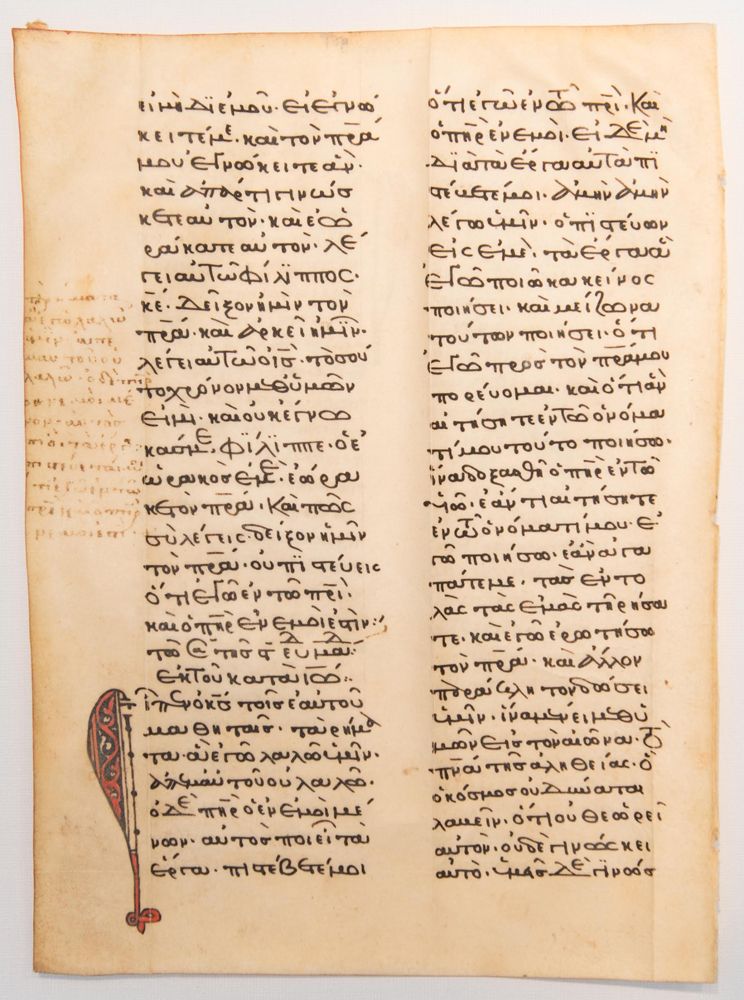 εἰ μὴ δϊ ἐμοῦ· εἰ ἐγνώ
κειτέ με· καὶ τὸν πρα
μου ἐγνώκειτε ἄν·
καὶ ἀπάρτι γινώσ
κετε αὐτὸν· καὶ ἑω
ράκατε αὐτὸν· λέ
γει αὐτῶ φίλϊππος·
κε· δεῖξον ἡμῖν τὸν
πρα· καὶ ἀρκεῖ ἡμῖν·
λέγει αὐτῶ ὁ ις· τοσοῦ
το χρόνον μεθ ὑμῶν
εἰμὶ· καὶ οὐκ ἔγνω
κάς με φίλϊππε· ὁ ἑ
ωρακὼς ἐμὲ· ἑώρα
κε τὸν πρα· καὶ πῶς
σὺ λέγεις· δεῖξον ἡμῖν
τὸν πρα· οὐ πϊστεύεις
ὅτι ἐγὼ ἐν τῶ πρι·
καὶ ὁ πηρ ἐν ἐμοί ἐστιν:
Ἐκ τοῦ κατὰ ιω:
εἶπεν ὁ κς τοῖς ἑαυτοῦ
μαθηταῖς· τὰ ρήμα
τα ἃ ἐγὼ λαλῶ ὑμῖν·
ἀπ ἐμαυτοῦ οὐ λαλῶ·
ὁ δὲ πηρ ὁ ἐν ἐμοὶ μέ
νων· αὐτὸς ποιεῖ τὰ
ἔργα· πιστεύετέ μοι
ὅτι ἐγὼ ἐν τῶ πρι· καὶ
ὁ πηρ ἐν ἐμοί· εἰ δὲ μὴ
διὰ τὰ ἔργα αὐτὰ πϊ
στεύετέ μοι· ἀμὴν ἀμὴν
λέγω ὑμῖν· ὁ πϊστεύων
εἰς ἐμὲ· τὰ ἔργα ἃ
ἐγὼ ποιῶ κακεῖνος
ποιήσει· καὶ μείζωνα
τούτων ποιήσει· ὅτι
ἐγὼ πρὸς τὸν πρα μου
πορεύομαι· καὶ ὅτι ἂν
αἰτήσητε ἐν τῶ ὀνόμα
τί μου τοῦτο ποιήσω·
ἵνα δοξασθῆ ὁ πηρ ἐν τῶ
υἱῶ· ἐάν τι αἰτήσητε
ἐν τῶ ὀνόματί μου· ἐ
γὼ ποιήσω· ἐὰν ἀγα
πᾶτέ με· τὰς ἐντο
λὰς τὰς ἐμὰς τηρήσα
τε· καὶ ἐγὼ ἐρωτήσω
τὸν πρα· καὶ ἄλλον
παράκλητον δώσει
ὑμῖν· ἵνα μένει μεθ ὑ
μῶν εἰς τὸν αἰῶνα· τὸ
πνα τῆς ἀληθείας· ὃ
ὁ κόσμος οὐ δύναται
λαβεῖν· ὅτι οὐ θεωρεῖ
αὐτὸν· οὐδὲ γινώσκει
αὐτό· ὑμεῖς δὲ γινώσ